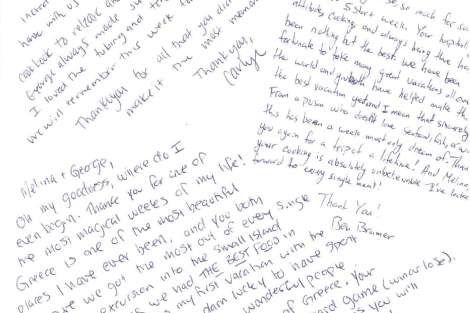 have with us
can look to release and
George always made su
I loved the tubing and te
we will remember this week fo
Thankyou for all that you did
make it the most memo
Thankyou,
Carlye
so much for
5 start week. Your hospital
cooking and always being there
been nothing but the best we have been
fortunate to take many great vacations all over
the world and you both have helped make th
the best vacation yet and I mean that sincerely
From a person who doesn't love seafood, fish, or w
this has been a week most only dream of. Than
you again for a trip of a lifetime! And Melina
your cooking is absolutely unbelievable I've looked
forward to every single meal!
Thank You!
Ben Brumer
Melina + George,
Oh my goodness, where do I
even begin. Thank you for one of
the most magical weeks of my life!
Greece is one of the most beautiful
places I have ever been, and you both
we got the most out of every single
excursion into the small island
we had THE BEST FOOD in
my first vacation with the
darn lucky to have spent
wonderful people
of Greece, your
card game (win or lose),
you will